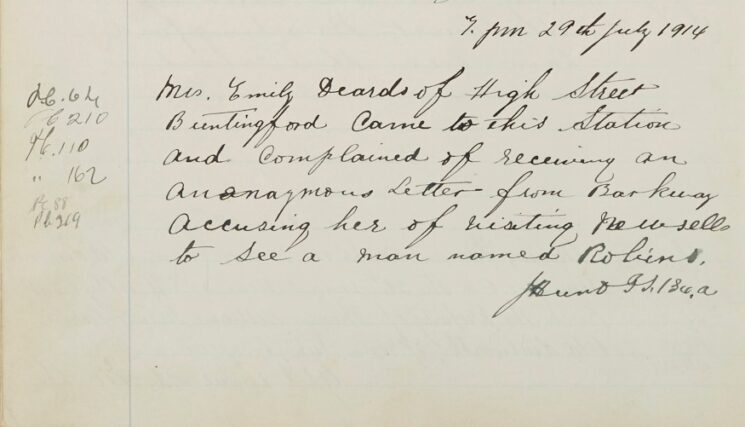 7. pm 29th July 1914
Mrs. Emily Deards of High Street
Buntingford Came to this Station
and Complained of receiving an
Ananaymous Letter from Barkway
accusing her of visiting Newsells
to See a man named Robins.
Hunt
210
Pc. 110
" 162
Pc 88